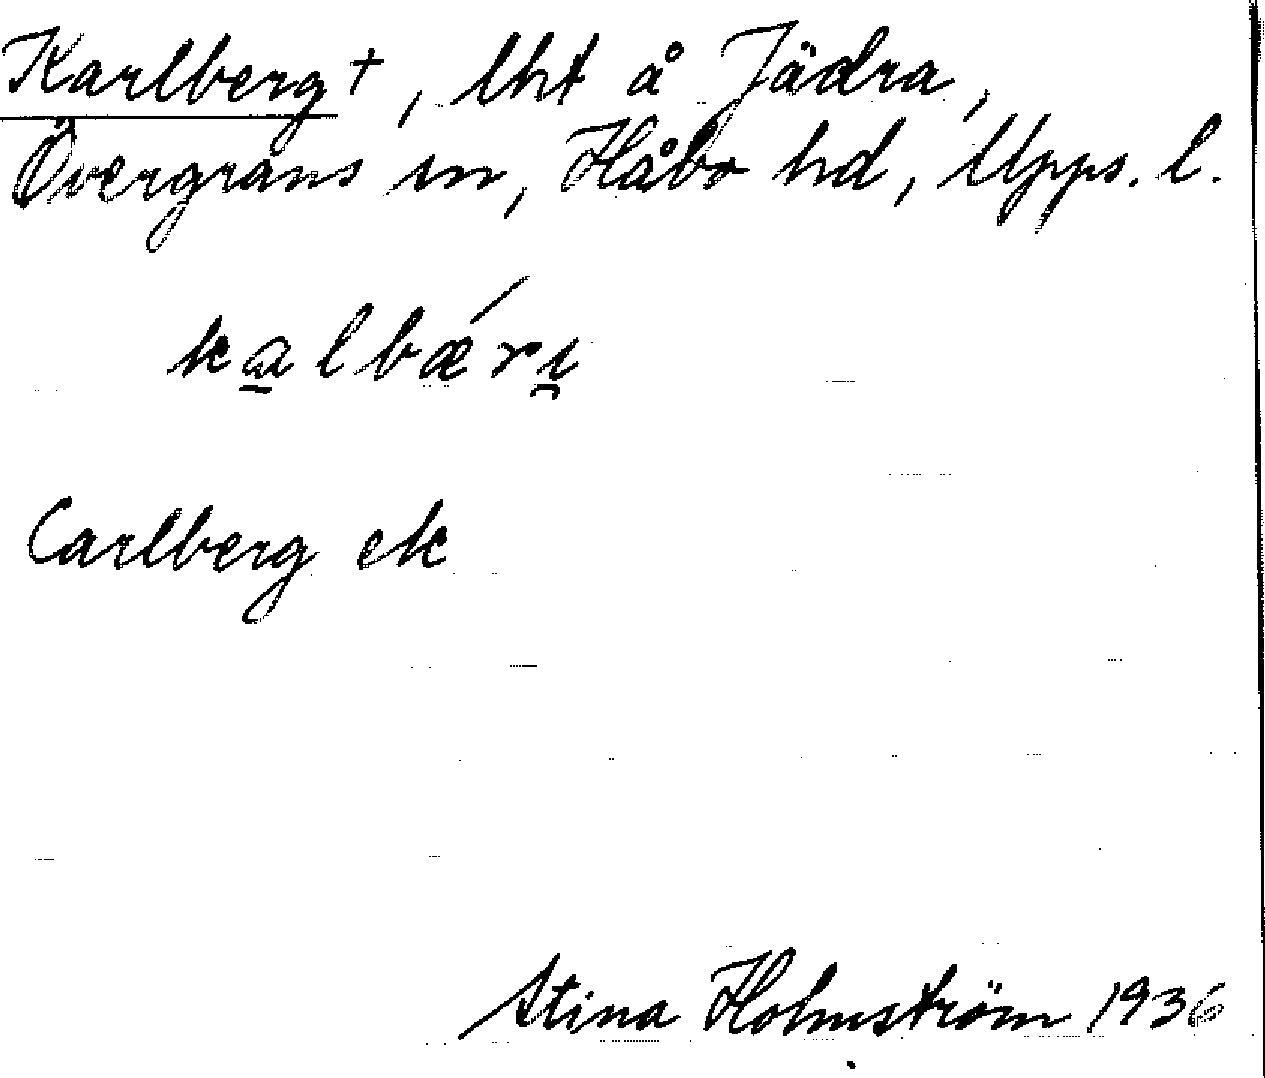 Karlberg †, lht å Jädra,
Övergrans sn, Håbo hd, Upps. l.
ka̲lbǽri̯
Carlberg ek
Stina Holmström 1936